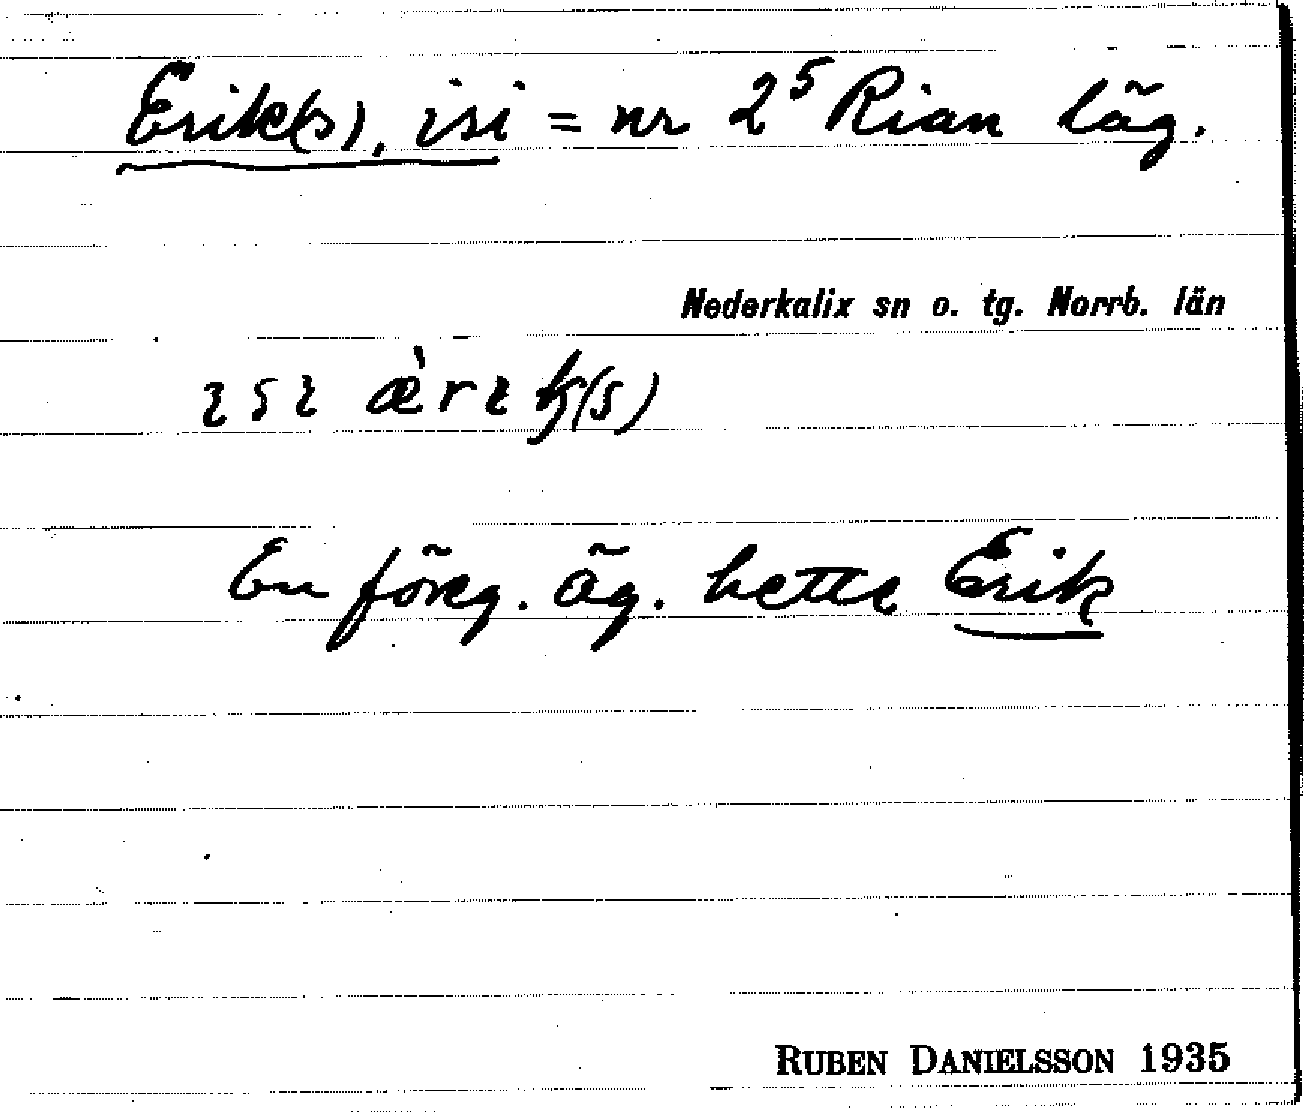 Erik(s), isi = nr 2⁵ Rian läg.
Nederkalix sn o. tg. Norrb. län
En föreg. äg. hette Erik
RUBEN DANIELSSON 1935